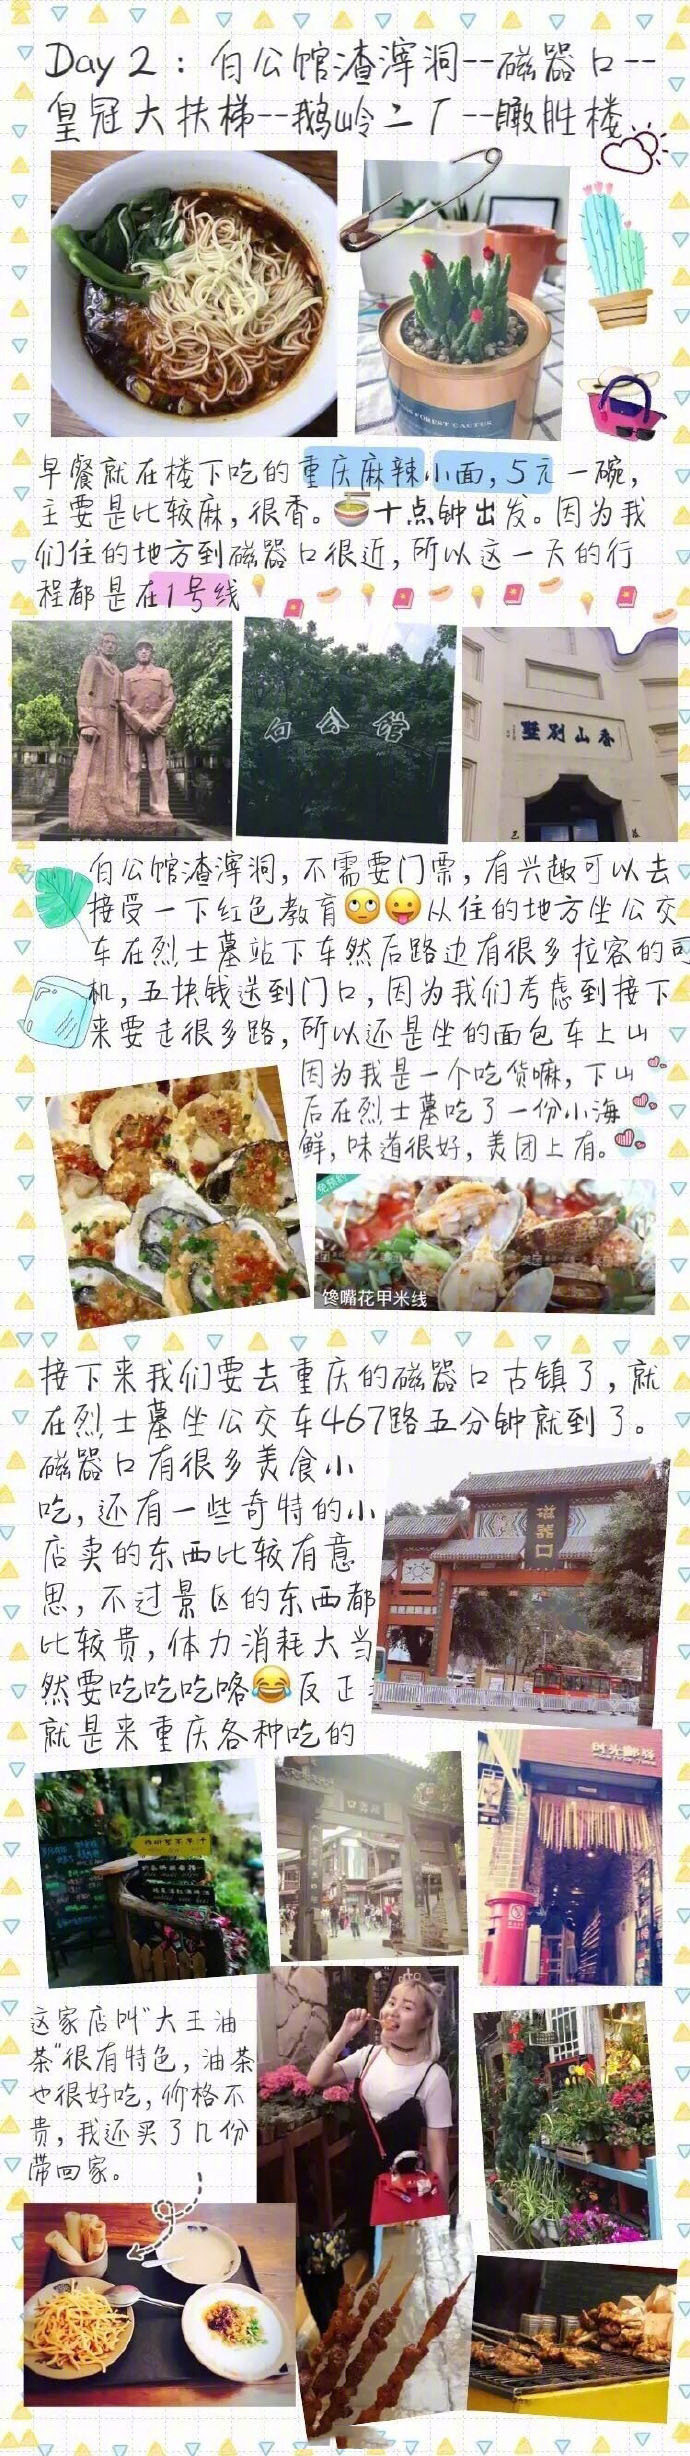 Day 2：白公馆渣滓洞--磁器口--
皇冠大扶梯--鹅岭二厂--瞰胜楼
FOREST CACTUS
早餐就在楼下吃的重庆麻辣小面，5元一碗，
主要是比较麻，很香。十点钟出发。因为我
们住的地方到磁器口很近，所以这一天的行
程都是在1号线
白公馆
香山别墅
白公馆渣滓洞，不需要门票，有兴趣可以去
接受一下红色教育🙄😛从住的地方坐公交
车在烈士墓站下车然后路边有很多拉客的司
机，五块钱送到门口，因为我们考虑到接下
来要走很多路，所以还是坐的面包车上山
因为我是一个吃货嘛，下山
后在烈士墓吃了一份小海
鲜，味道很好，美团上有。
免预约
馋嘴花甲米线
接下来我们要去重庆的磁器口古镇了，就
在烈士墓坐公交车467路五分钟就到了。
磁器口有很多美食小
吃，还有一些奇特的小
店卖的东西比较有意
思，不过景区的东西都
比较贵，体力消耗大当
然要吃吃吃咯😂反正
就是来重庆各种吃的
磁器口
这家店叫“大王油
茶”很有特色，油茶
也很好吃，价格不
贵，我还买了几份
带回家。